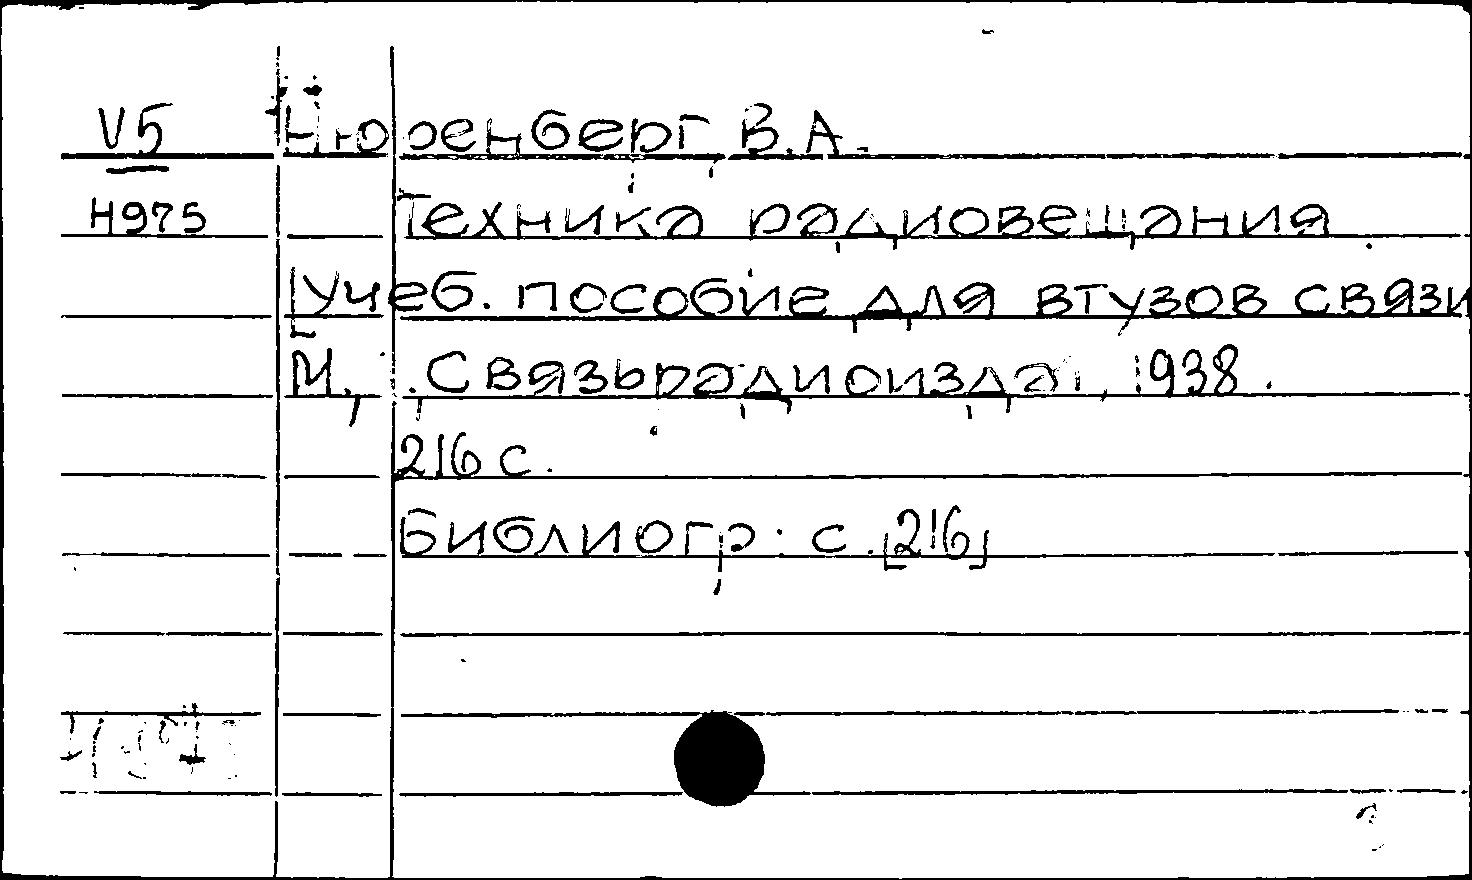 V5 Нюренберг В.А.
Н975 Техника радиовещания
[Учеб. пособие для втузов связи
М., Связьрадиоиздат, 1938.
216 с.
Библиогр: с. [216]